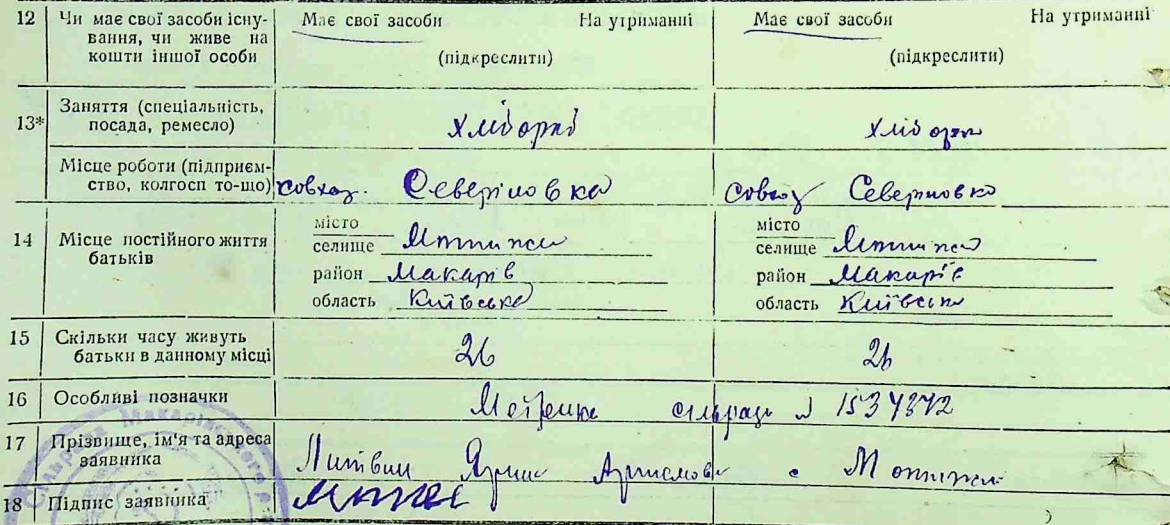 12 Чи має свої засоби існу-
вання, чи живе на
кошти іншої особи
Має свої засоби На утриманні
(підкреслити)
Має свої засоби На утриманні
(підкреслити)
13* Заняття (спеціальність,
посада, ремесло)
Хлібороб
Хлібороб
Місце роботи (підприєм-
ство, колгосп то-що)
совхоз. Северіновка
совхоз Северіновка
14 Місце постійного життя
батьків
місто
селище Мотижин
район Макарів
область Київська
місто
селище Мотижин
район Макарів
область Київська
15 Скільки часу живуть
батьки в данному місці
26
26
16 Особливі позначки
Метрика сільради № 1534372
17 Прізвище, ім'я та адреса
заявника
Литвин с Мотижин
18 Підпис заявника